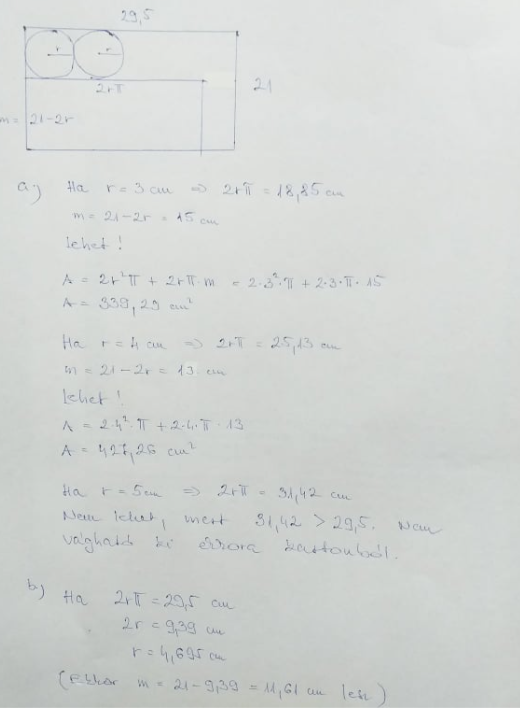 29,5
r r
2rπ
21
m = 21-2r
a.) Ha r = 3 cm ⇒ 2rπ = 18,85 cm
m = 21-2r = 15 cm
lehet!
A = 2r²π + 2rπ m = 2·3²·π + 2·3·π·15
A = 339,29 cm²
Ha r = 4 cm ⇒ 2rπ = 25,13 cm
m = 21-2r = 13 cm
lehet!
A = 2·4²·π + 2·4·π·13
A = 427,26 cm²
Ha r = 5cm ⇒ 2rπ = 31,42 cm
Nem lehet, mert 31,42 > 29,5. Nem
vágható ki ekkora kartonból.
b) Ha 2rπ = 29,5 cm
2r = 9,39 cm
r = 4,695 cm
(Ekkor m = 21-9,39 = 11,61 cm lesz)